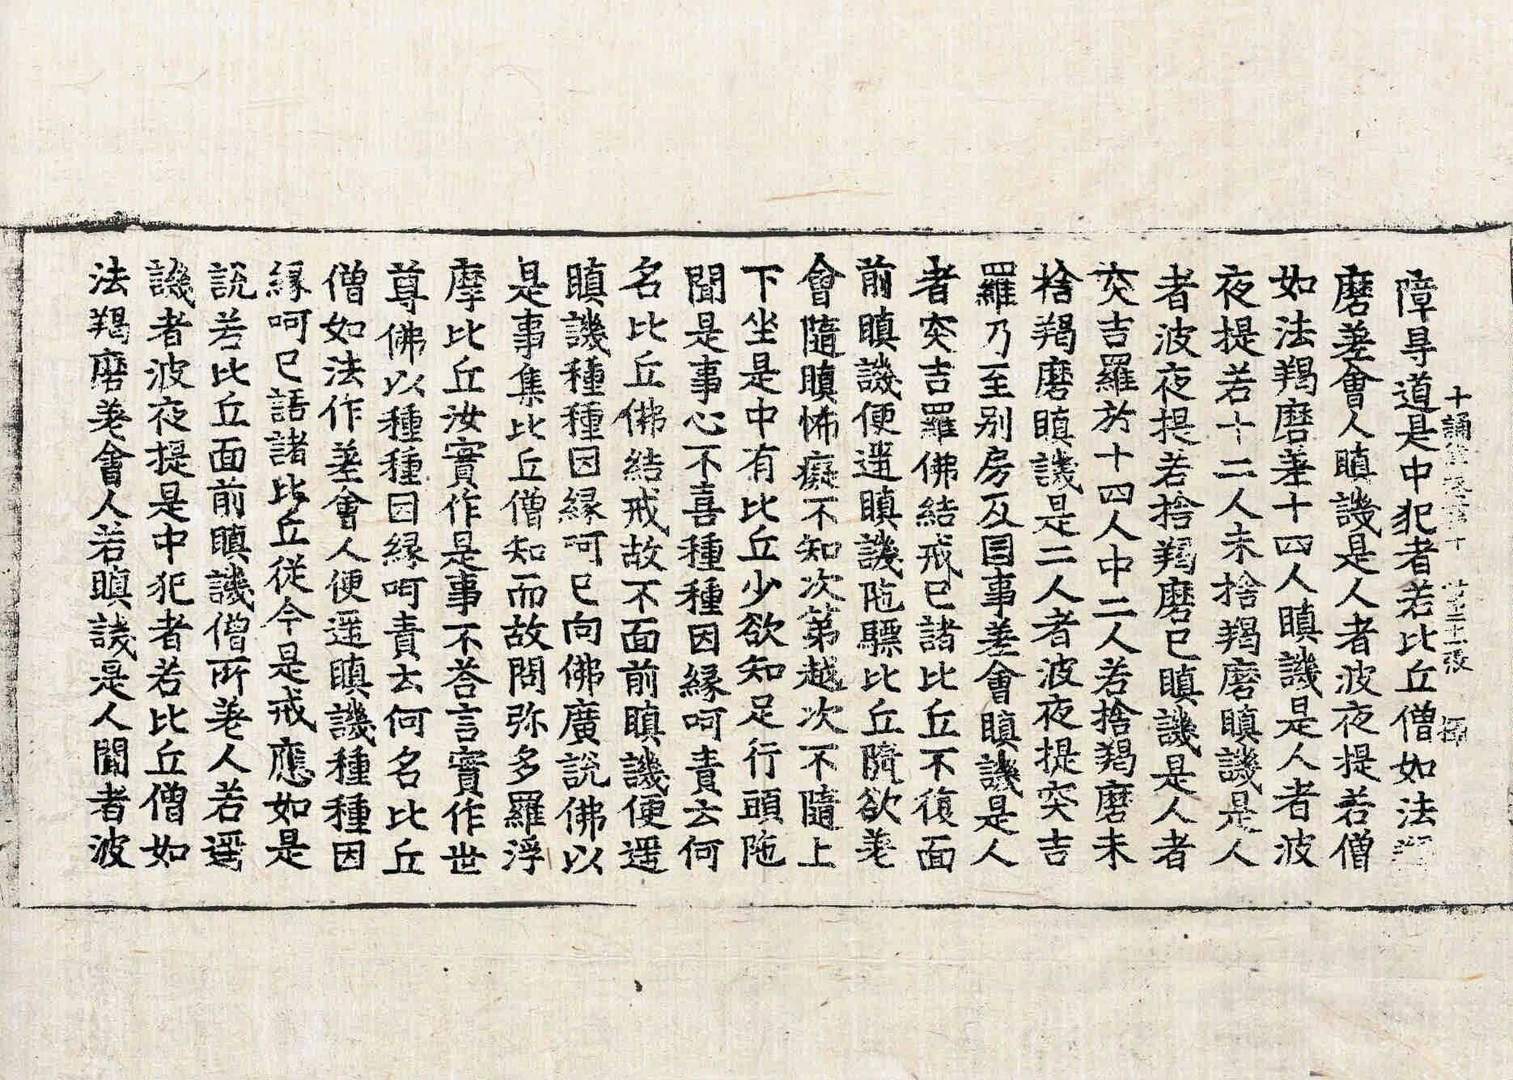 障㝵道是中犯者若比丘僧如法羯
磨差會人瞋譏是人者波夜提若僧
如法羯磨差十四人瞋譏是人者波
夜提若十二人未捨羯磨瞋譏是人
者波夜提若捨羯磨已瞋譏是人者
突吉羅於十四人中二人若捨羯磨未
捨羯磨瞋譏是二人者波夜提突吉
羅乃至別房及因事差會瞋譏是人
者突吉羅佛結戒已諸比丘不復面
前瞋譏便遥瞋譏陁驃比丘隨欲差
會隨瞋怖癡不知次第越次不隨上
下坐是中有比丘少欲知足行頭陁
聞是事心不喜種種因緣呵責云何
名比丘佛結戒故不面前瞋譏便遥
瞋譏種種因緣呵已向佛廣說佛以
是事集比丘僧知而故問弥多羅浮
摩比丘汝實作是事不荅言實作世
尊佛以種種因緣呵責云何名比丘
僧如法作差會人便遥瞋譏種種因
緣呵已語諸比丘從今是戒應如是
說若比丘面前瞋譏僧所差人若遥
譏者波夜提是中犯者若比丘僧如
法羯磨差會人若瞋譏是人聞者波